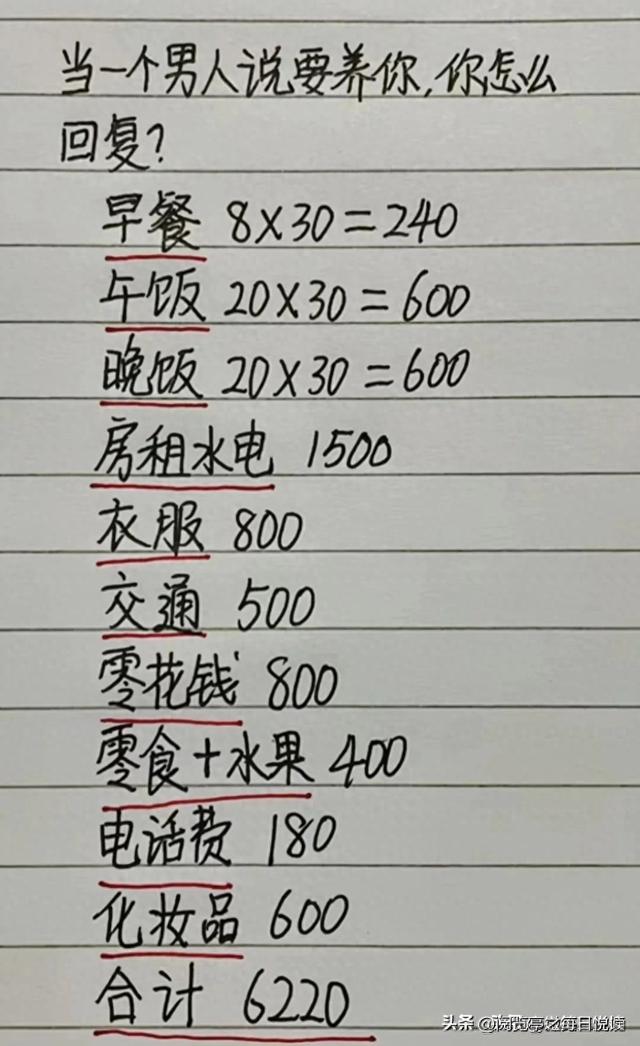 当一个男人说要养你,你怎么
回复?
早餐 8×30=240
午饭 20×30=600
晚饭 20×30=600
房租水电 1500
衣服 800
交通 500
零花钱 800
零食+水果 400
电话费 180
化妆品 600
合计 6220
头条